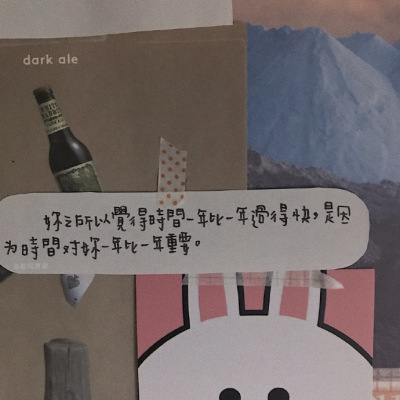 dark ale
妳之所以覺得時間一年比一年過得快，是因
为時間对妳一年比一年重要。